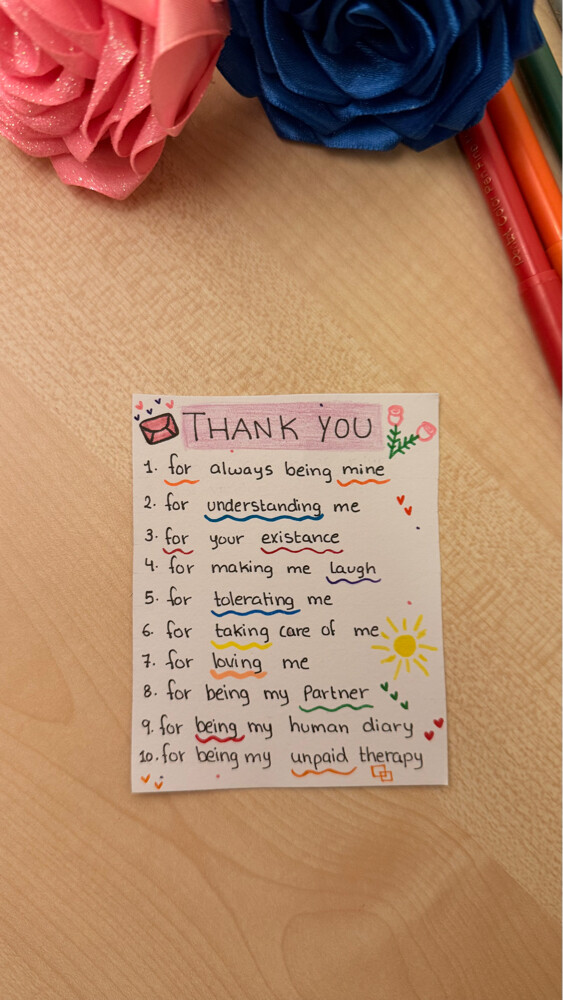 THANK YOU
1. for always being mine
2. for understanding me
3. for your existance
4. for making me laugh
5. for tolerating me
6. for taking care of me
7. for loving me
8. for being my partner
9. for being my human diary
10. for being my unpaid therapy